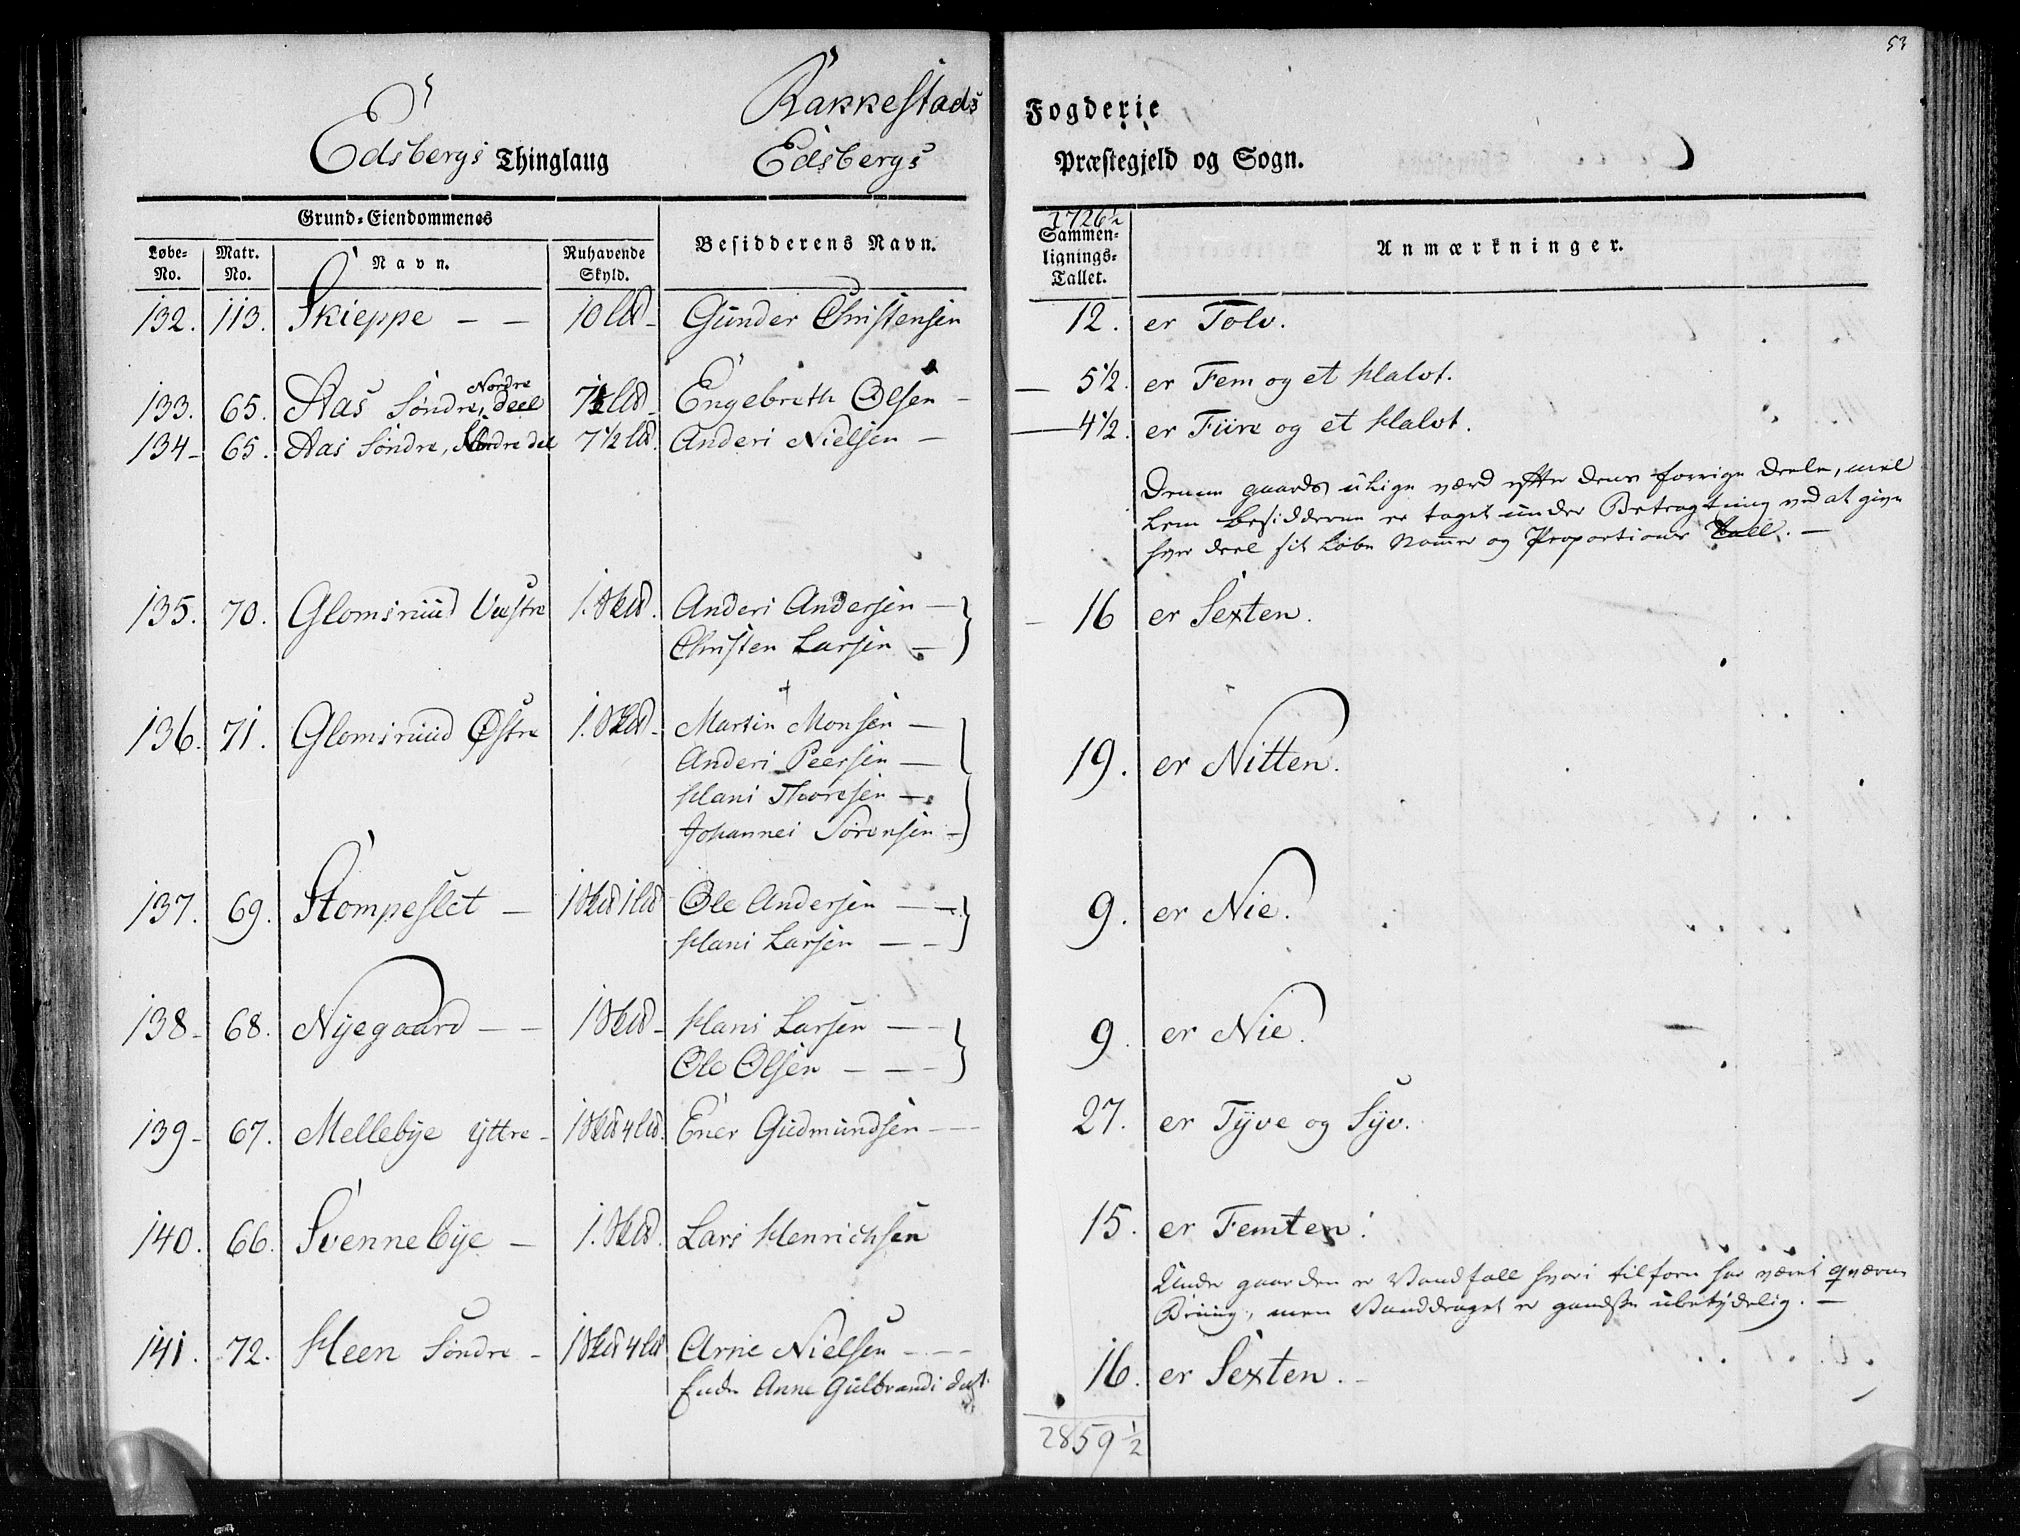 53
Rakkestads Fogderie
Edsbergs Thinglaug Edsbergs Præstegjeld og Sogn.
Grund-Eiendommenes
Løbe-No. Matr. No. Navn. Ruhavende Skyld. Besidderens Navn. Sammen-lignings-Tallet. Anmærkninger.
1726½
132. 113. Skieppe – – 10 Lb – Gunder Christensen 12. er Tolv.
133. 65. Aas Søndre, Nordre deel 7½ Lb – Engebreth Olsen – 5½. er Fem og et Halvt.
134 – 65. Aas Søndre, Søndre del 7½ Lb. Anders Nielsen – 4½. er Fiire og et Halvt.
Denne gaards ulige værd efter dens forrige Deele, mel
lem besidderne er taget under Betragtning ved at give
hver deel sit Løbe Nommer og Proportions Tall. –
135. 70. Glomsrüüd Vestre 1. Skd. Anders Andersen –
Christen Larsen – 16 er Sexten.
136. 71. Glomsrüüd Østre 1. Skd – Martin Monsen –
Anders Peersen –
Hans Thoresen –
Johannes Sørensen – 19. er Nitten.
137. 69. Stompeslet – 1 Skd 1 Lb Ole Andersen – –
Hans Larsen – – 9. er Nie.
138 – 68. Nyegaard – – 1 Skd – Hans Larsen – –
Ole Olsen – – – 9. er Nie.
139 – 67. Mellebye yttre – 1 Skd 4 Lb. Ener Gudmundsen – – 27. er Tyve og Syv.
140. 66. Svennebye – 1. Skd. Lars Henrichsen 15. er Femten.
Under gaarden er Vandfall hvori tilforn har været qværne
Bruug, men Vanddraget er gandske ubetydelig. –
141. 72. Heen Søndre – 1 Skd 4 Lb Arne Nielsen – –
Enke Anne Gulbrands dat. 16. er Sexten. –
2859½